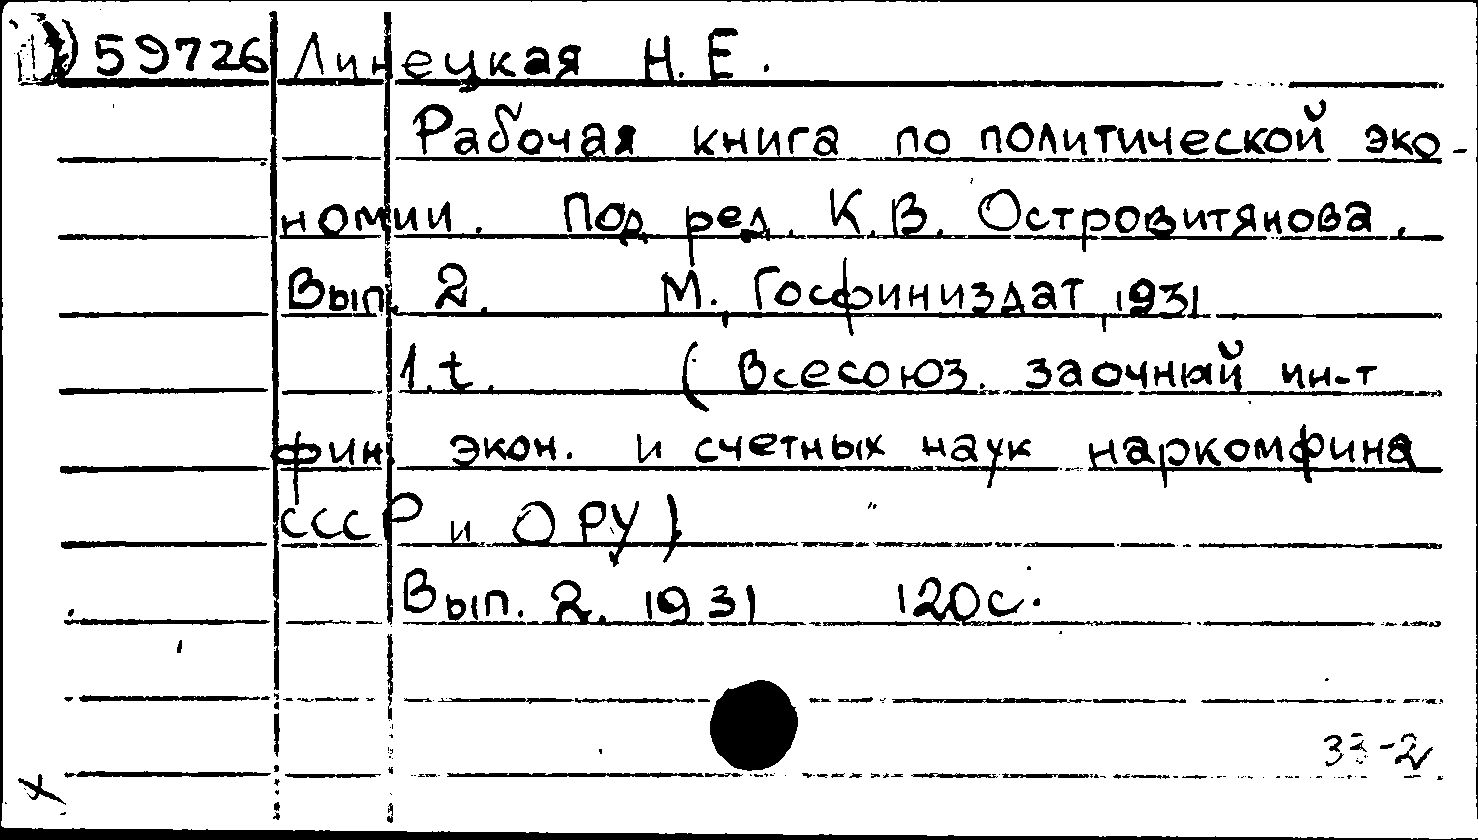 59726 Линецкая Н.Е.
Рабочая книга по политической эко-
номии. Под ред. К.В. Островитянова.
Вып. 2. М., Госфиниздат, 1931.
1.t. (Всесоюз. заочный ин-т
фин. экон. и счетных наук наркомфина
СССР и ОРУ)
Вып. 2. 1931 120с.
33-2